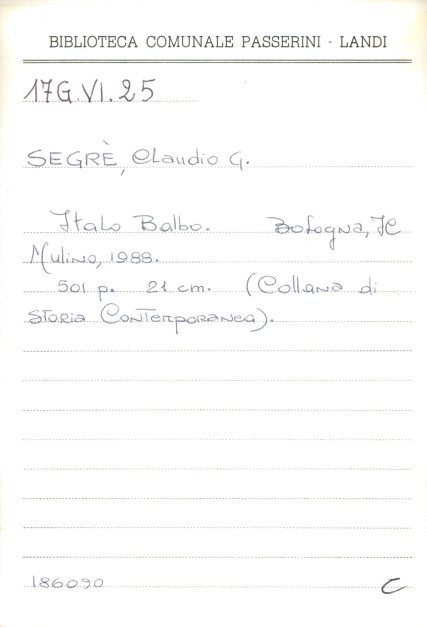 BIBLIOTECA COMUNALE PASSERINI - LANDI
17G.VI.25
SEGRÈ, Claudio G.
Italo Balbo. Bologna, Il
Mulino, 1988.
501 p. 21 cm. (Collana di
Storia Contemporanea).
186090 C